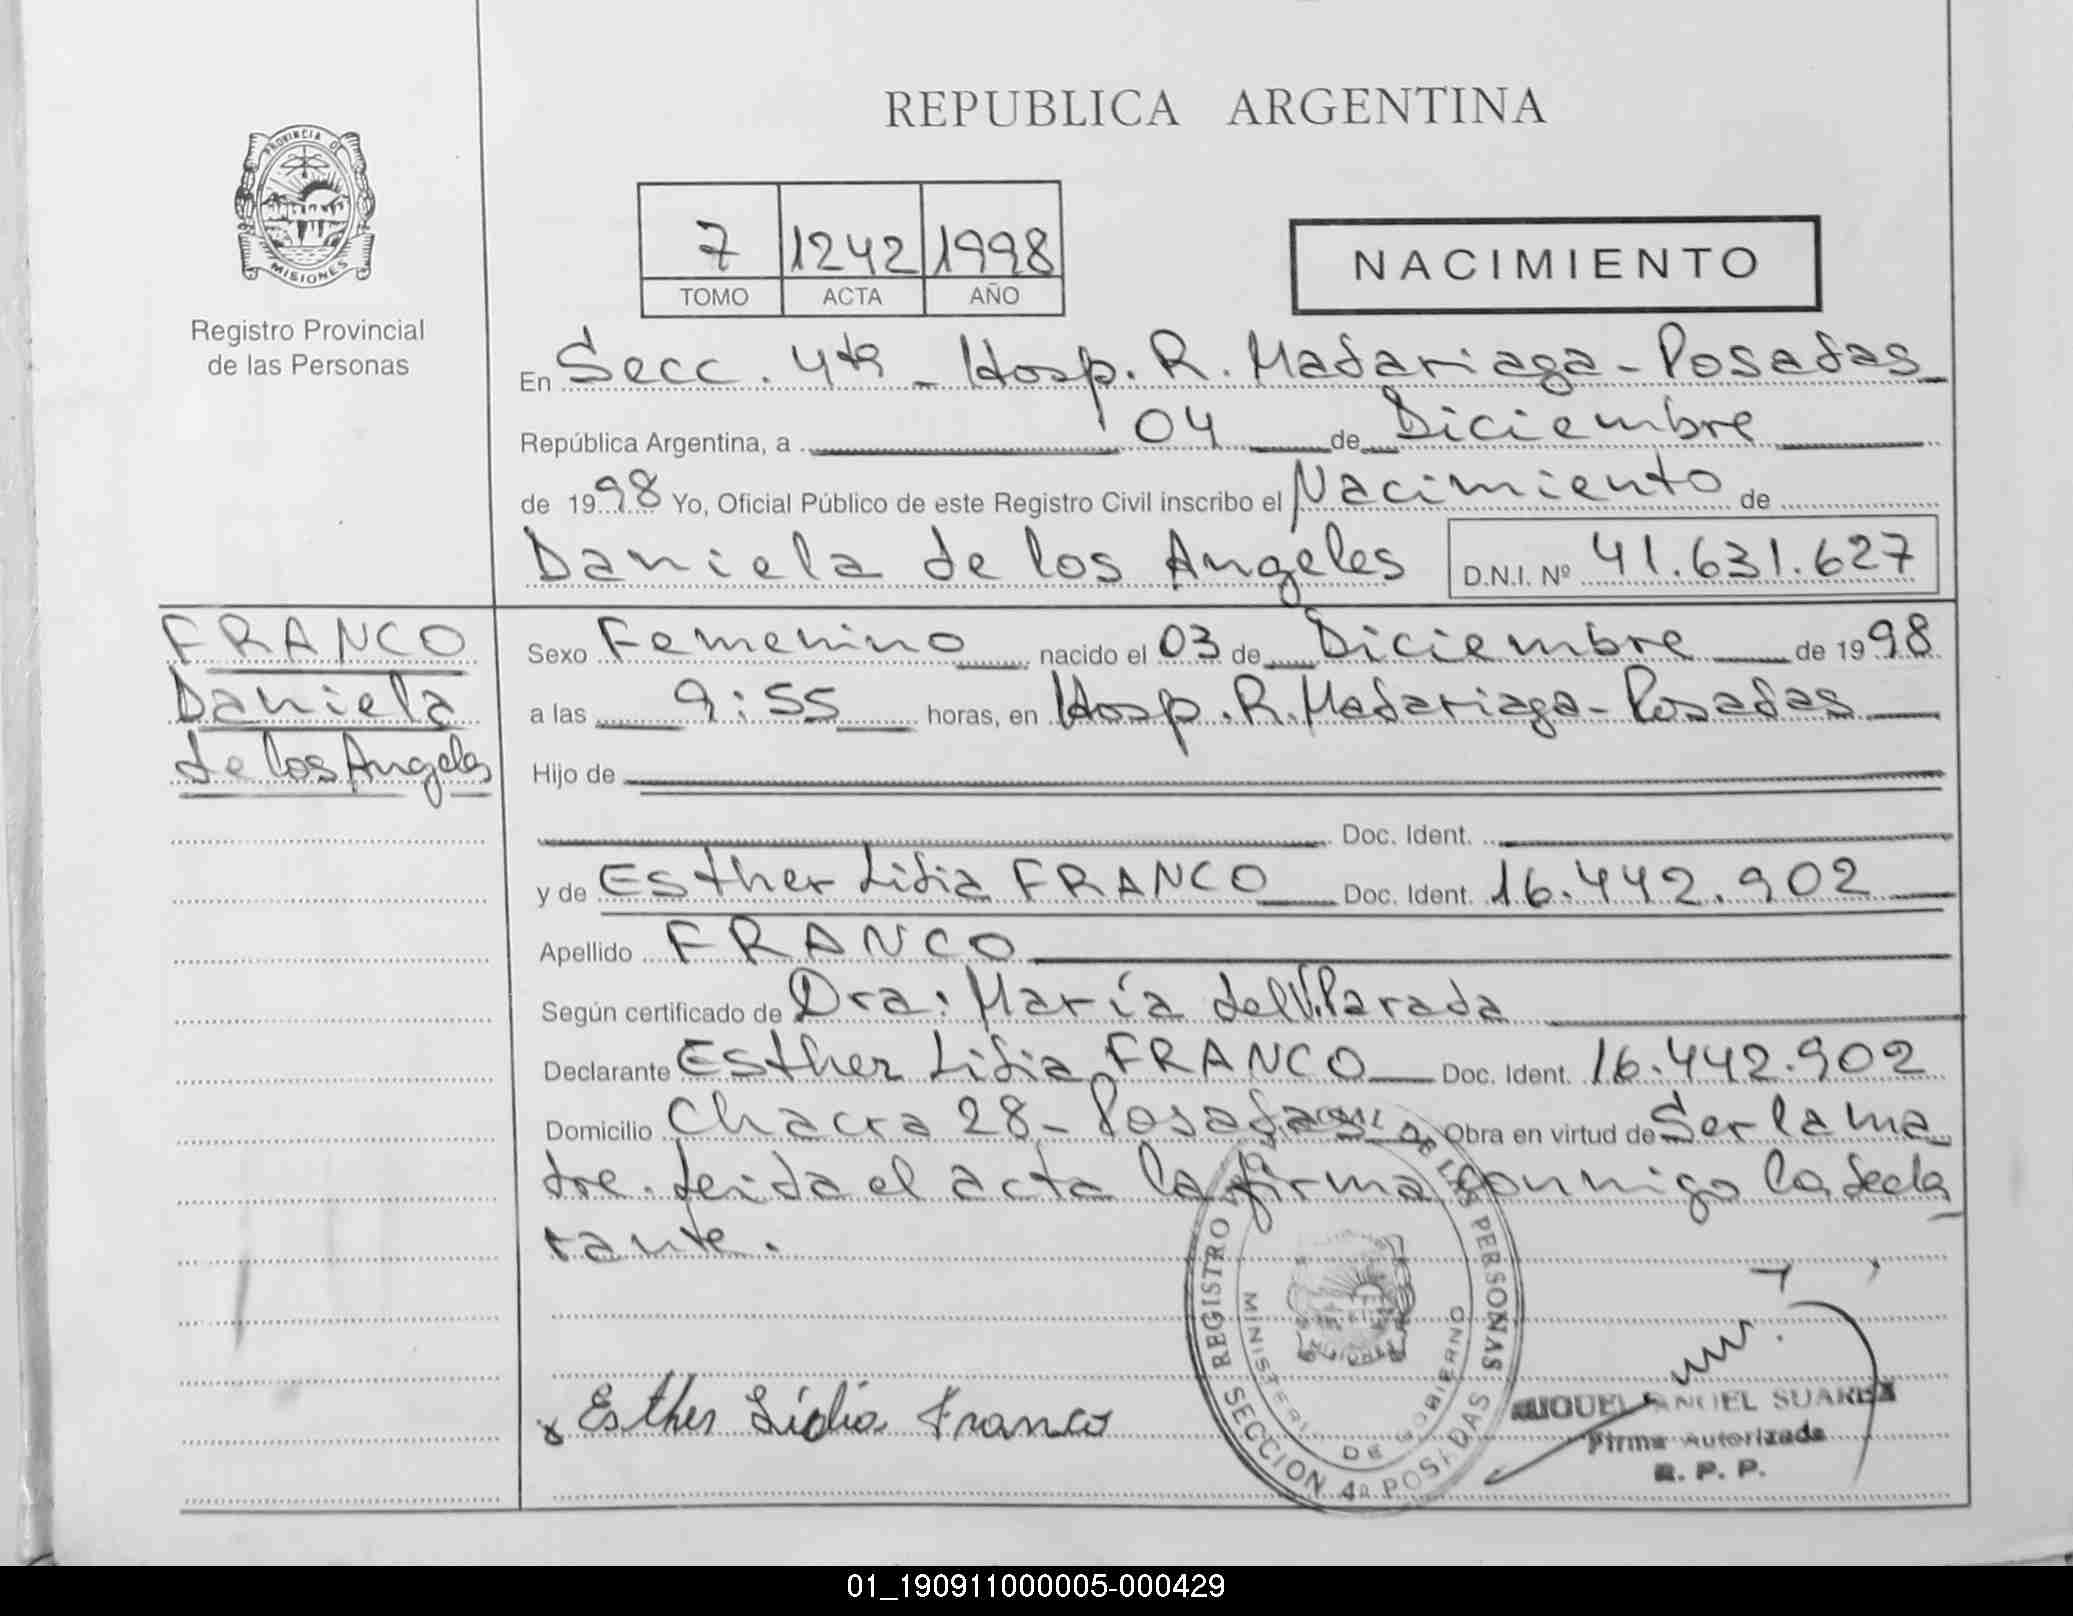 REPUBLICA ARGENTINA
PROVINCIA DE
MISIONES
Registro Provincial
de las Personas
7 1242 1998
TOMO ACTA AÑO
NACIMIENTO
En Secc. 4ta - Hosp. R. Madariaga - Posadas
República Argentina, a 04 de Diciembre
de 1998 Yo, Oficial Público de este Registro Civil inscribo el Nacimiento de
Daniela de los Angeles D.N.I. Nº 41.631.627
FRANCO
Daniela
de los Angeles
Sexo Femenino nacido el 03 de Diciembre de 1998
a las 9:55 horas, en Hosp. R. Madariaga - Posadas
Hijo de
Doc. Ident.
y de Esther Lidia FRANCO Doc. Ident. 16.442.902
Apellido FRANCO
Según certificado de Dra: María del V. Parada
Declarante Esther Lidia FRANCO Doc. Ident. 16.442.902
Domicilio Chacra 28 - Posadas Obra en virtud de Ser la ma
dre. Leida el acta la firma conmigo la decla
rante.
REGISTRO DE LAS PERSONAS
MINISTERIO DE GOBIERNO
SECCION 4a POSADAS
Esther Lidia Franco
MIGUEL ANGEL SUAREZ
Firma Autorizada
R. P. P.
01_190911000005-000429